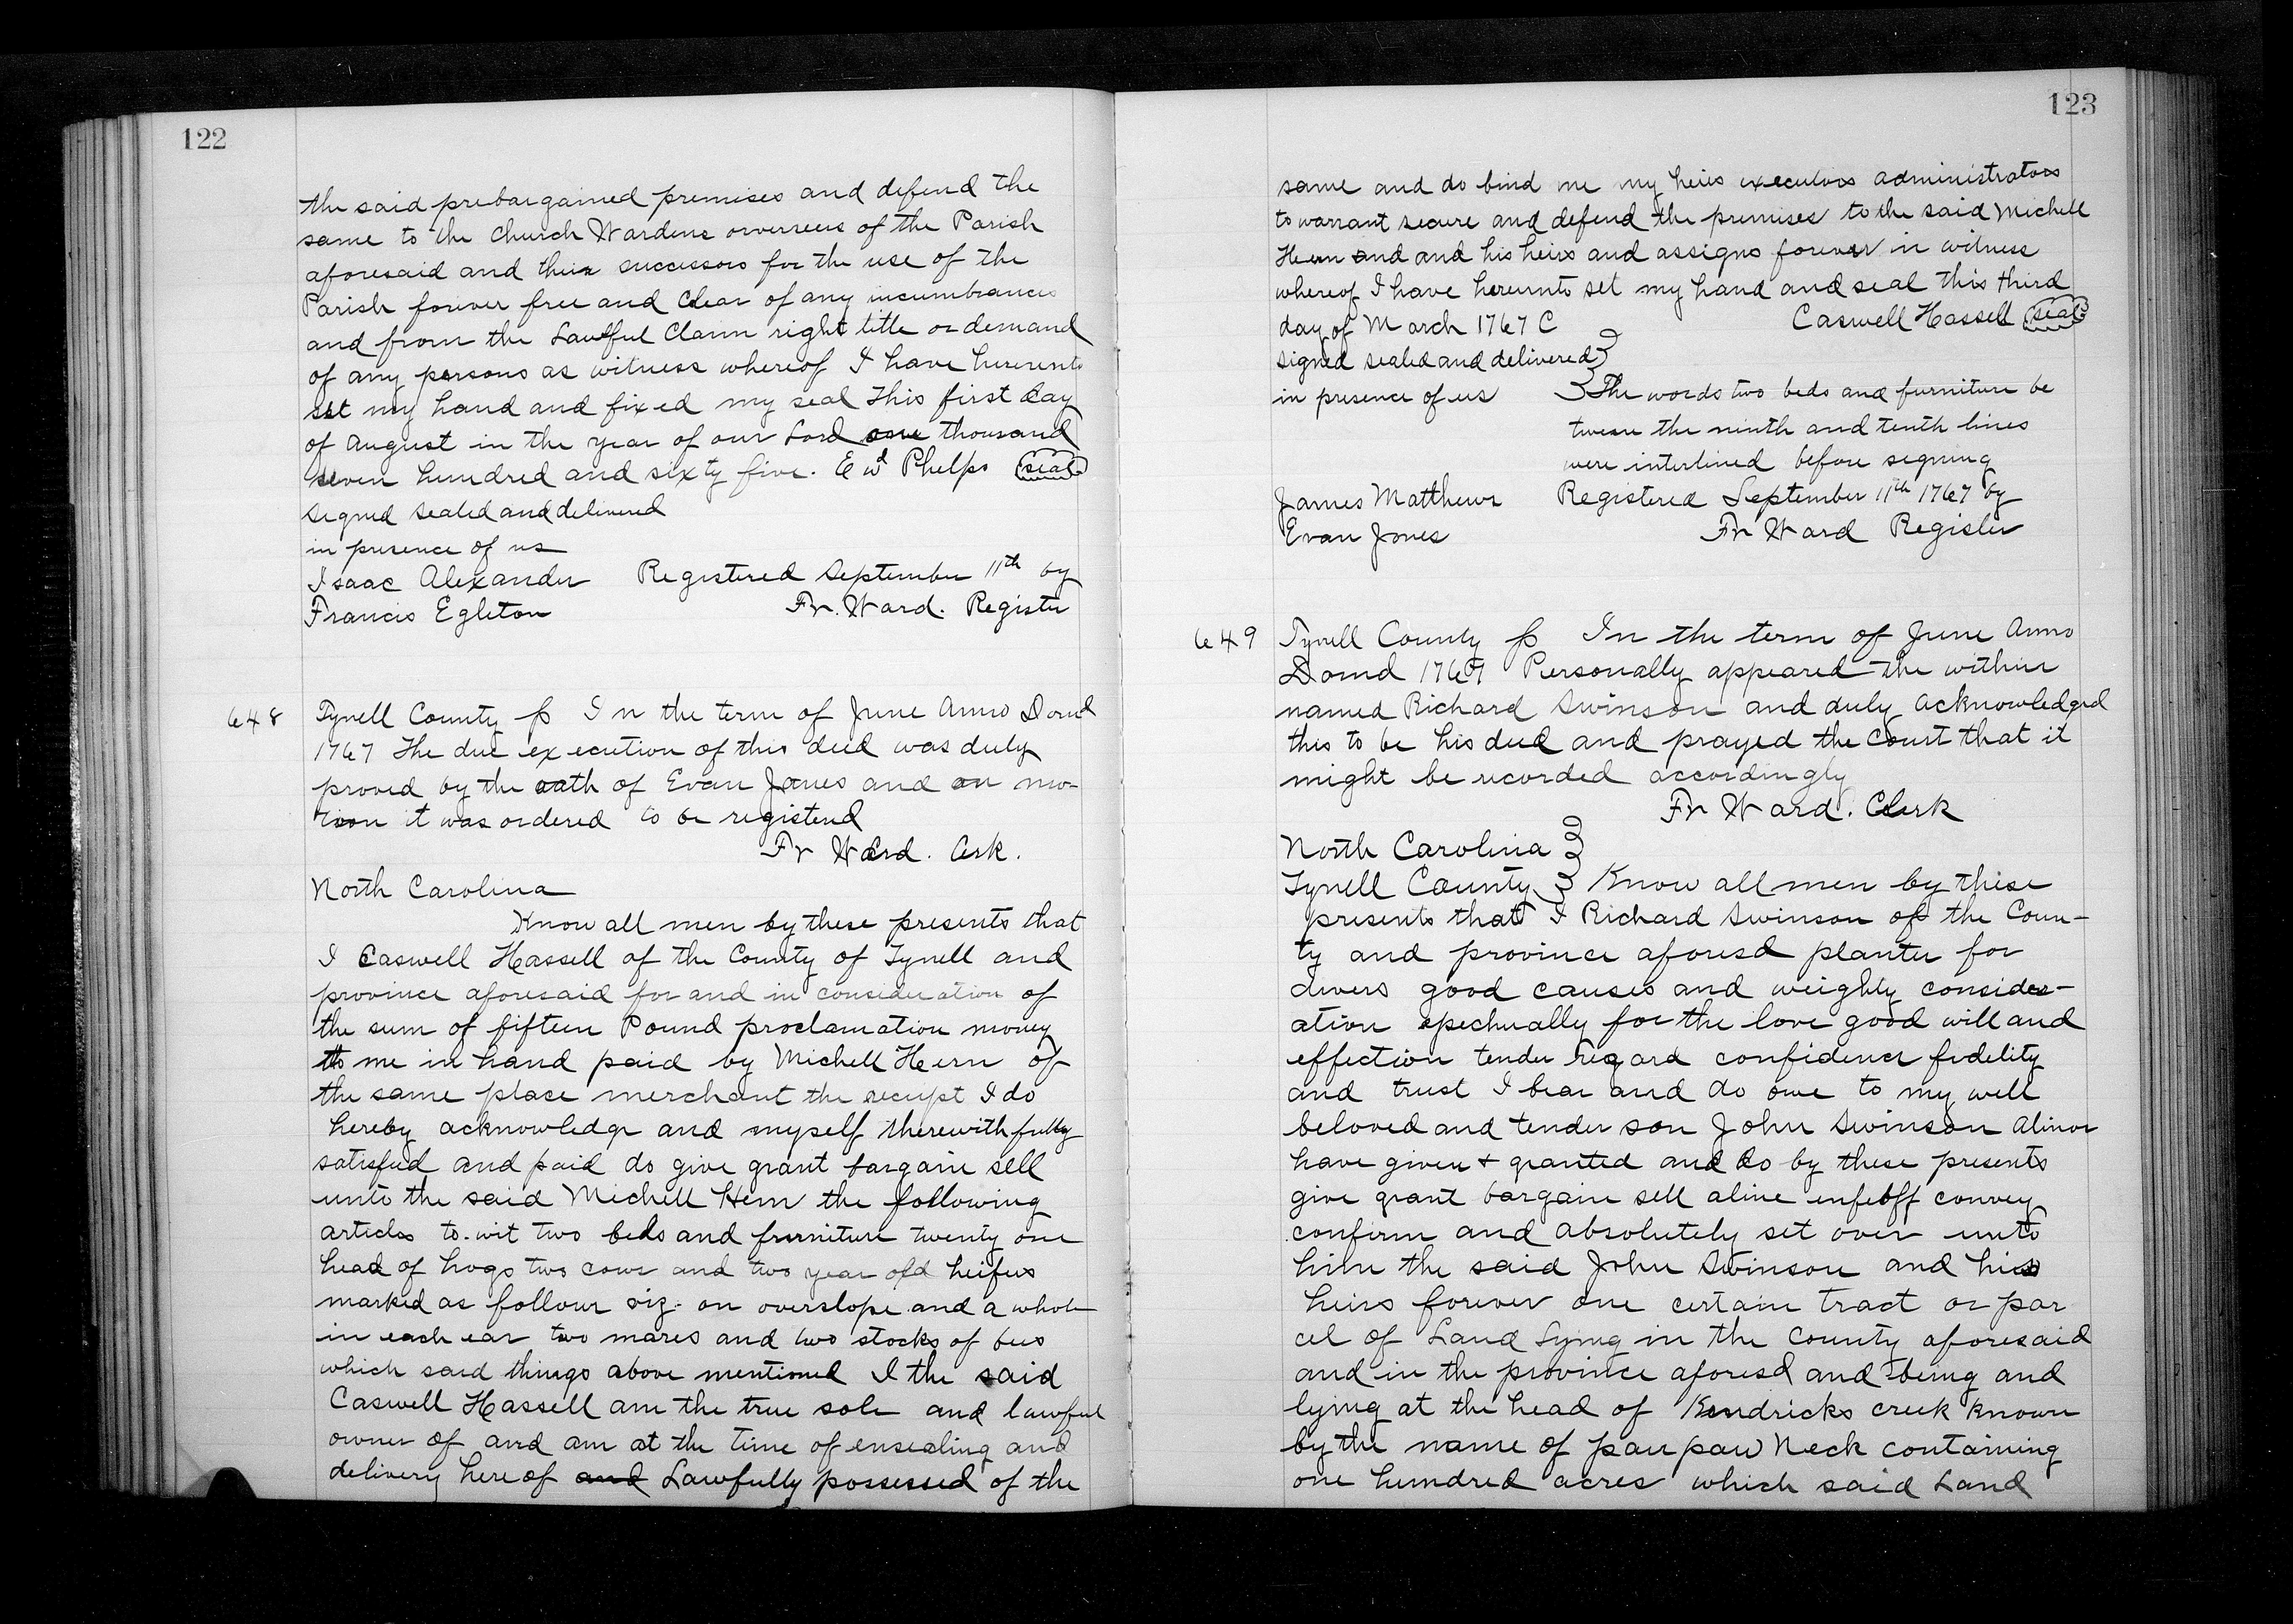 122
the said prebargained premises and defend the
same to the Church Wardens orversees of the Parish
aforesaid and their successors for the use of the
Parish forever free and clear of any incumbrances
and from the Lawful Claim right title or demand
of any persons as witness whereof I have hereunto
set my hand and fixed my seal This first day
of August in the year of our Lord one thousand
seven hundred and sixty five. Ewd Phelps (seal)
Signed sealed and delivered
in presence of us
Isaac Alexander Registered September 11th by
Francis Egleton Fr. Ward. Register
648 Tyrell County ss In the term of June Anno Domd
1767 The due execution of this deed was duly
proved by the oath of Evan Jones and on mo-
tion it was ordered to be registerd
Fr Ward. Clrk.
North Carolina
Know all men by these presents that
I Caswell Hassell of the County of Tyrell and
province aforesaid for and in consideration of
the sum of fifteen Pound proclamation money
to me in hand paid by Michell Hern of
the same place merchant the receipt I do
hereby acknowledge and myself therewith fully
satisfied and paid do give grant bargain sell
unto the said Michell Hern the following
articles to.wit two beds and furniture twenty one
head of hogs two cows and two year old heifers
marked as follour viz. on overslope and a whole
in each ear two mares and two stocks of bees
which said things above mentioned I the said
Caswell Hassell am the true sole and lawful
owner of and am at the time of ensealing and
delivery hereof and Lawfully possessed of the
123
same and do bind me my heirs executors administrators
to warrant secure and defend the premises to the said Michell
Hern and and his heirs and assigns forever in witness
whereof I have hereunto set my hand and seal this third
day of March 1767 C Caswell Hassell (seal)
signed sealed and delivered
in presence of us The words two beds and furniture be
tween the ninth and tenth lines
were interlined before signing
James Matthews Registered September 11th 1767 by
Evan Jones Fr Ward Register
649 Tyrell County ss In the term of June Anno
Domd 1767 Personally appeared the within
named Richard Swinson and duly acknowledged
this to be his deed and prayed the Court that it
might be recorded accordingly
Fr Ward. Clerk
North Carolina
Tyrell County Know all men by these
presents that I Richard Swinson of the Coun-
ty and province aforesd planter for
divers good causes and weighty consider-
ation epecheually for the love good will and
effection tender regard confidence fidelity
and trust I bear and do owe to my well
beloved and tender son John Swinson Alinor
have given + granted and do by these presents
give grant bargain sell aline enfeoff convey
confirm and absolutely set over unto
him the said John Swinson and his
heirs forever one certain tract or par
cel of Land Lying in the County aforesaid
and in the province aforesd and being and
lying at the head of Kendricks creek known
by the name of paupaw Neck containing
one hundred acres which said Land